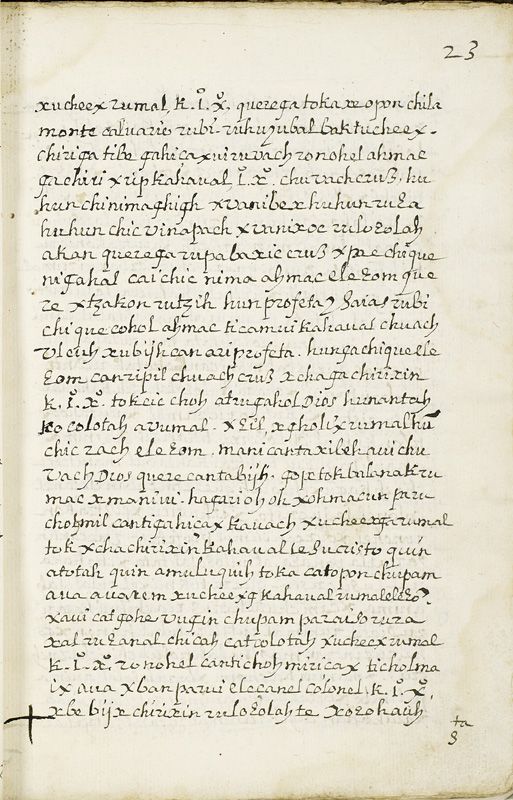 23
xucheex rumal, k. I. X. querega toka xe opon chila
monte caluario rubi. ruhuyubal baktucheex.
chiriga tibe gahica xuiruvach ronohel ahmac
gachiri xrip kahaual I. X. chuvach cruz, hu
hun chi nimaghigh xvanibex huhun ruεa
huhun chic vinapach xvanixoc ruloεolah
akan querega rupalaxic cruz xpe chique
nigahal caichic nima ahmac eleεom que
re xtzakon rutzih hun profeta Isaias rubi
chique cohol ahmac ticamiui kahaual chuach
Vleuh xubijh can ari profeta. hungachique ele
εom canripil chuach cruz xchaga chirixin
k. I. X. tokeic choh atrugahol Dios hunantah
ko colotah avumal. xεil, xgholix rumal hu
chic rach eleεom. mani cantaxibeh aui chu
Vach Dios quere cantabijh. ok balanak ru
mac xmaniui. hagari oh oh xohmacun paru
chohmil cantigahicax kavach xucheexga rumal
tok xchachirixin kahaual Iesucristo quin
atotah quin amuluquih toka catopon chupam
aua auarem xucheexg kahaual rumal eleεo?
xaui catgohe vugin chupam paraiso ruεa
xal ruεanal chicah catcolotah xucheex rumal
k. I. X. ronohel canti choh miricax ticholma
ix aua xban parui eleεanel colonel, k. I. X.
xbe bijx chirixin ruloεolah te xoεohauh
ta